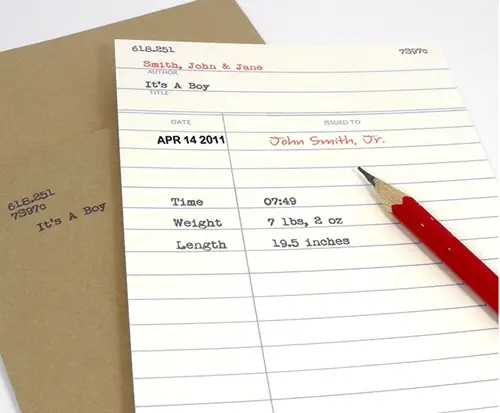 618.251 7S97c
Smith, John & Jane
AUTHOR
It's A Boy
TITLE
DATE ISSUED TO
APR 14 2011 John Smith, Jr.
Time 07:49
Weight 7 lbs, 2 oz
Length 19.5 inches
618.251
7S97c
It's A Boy